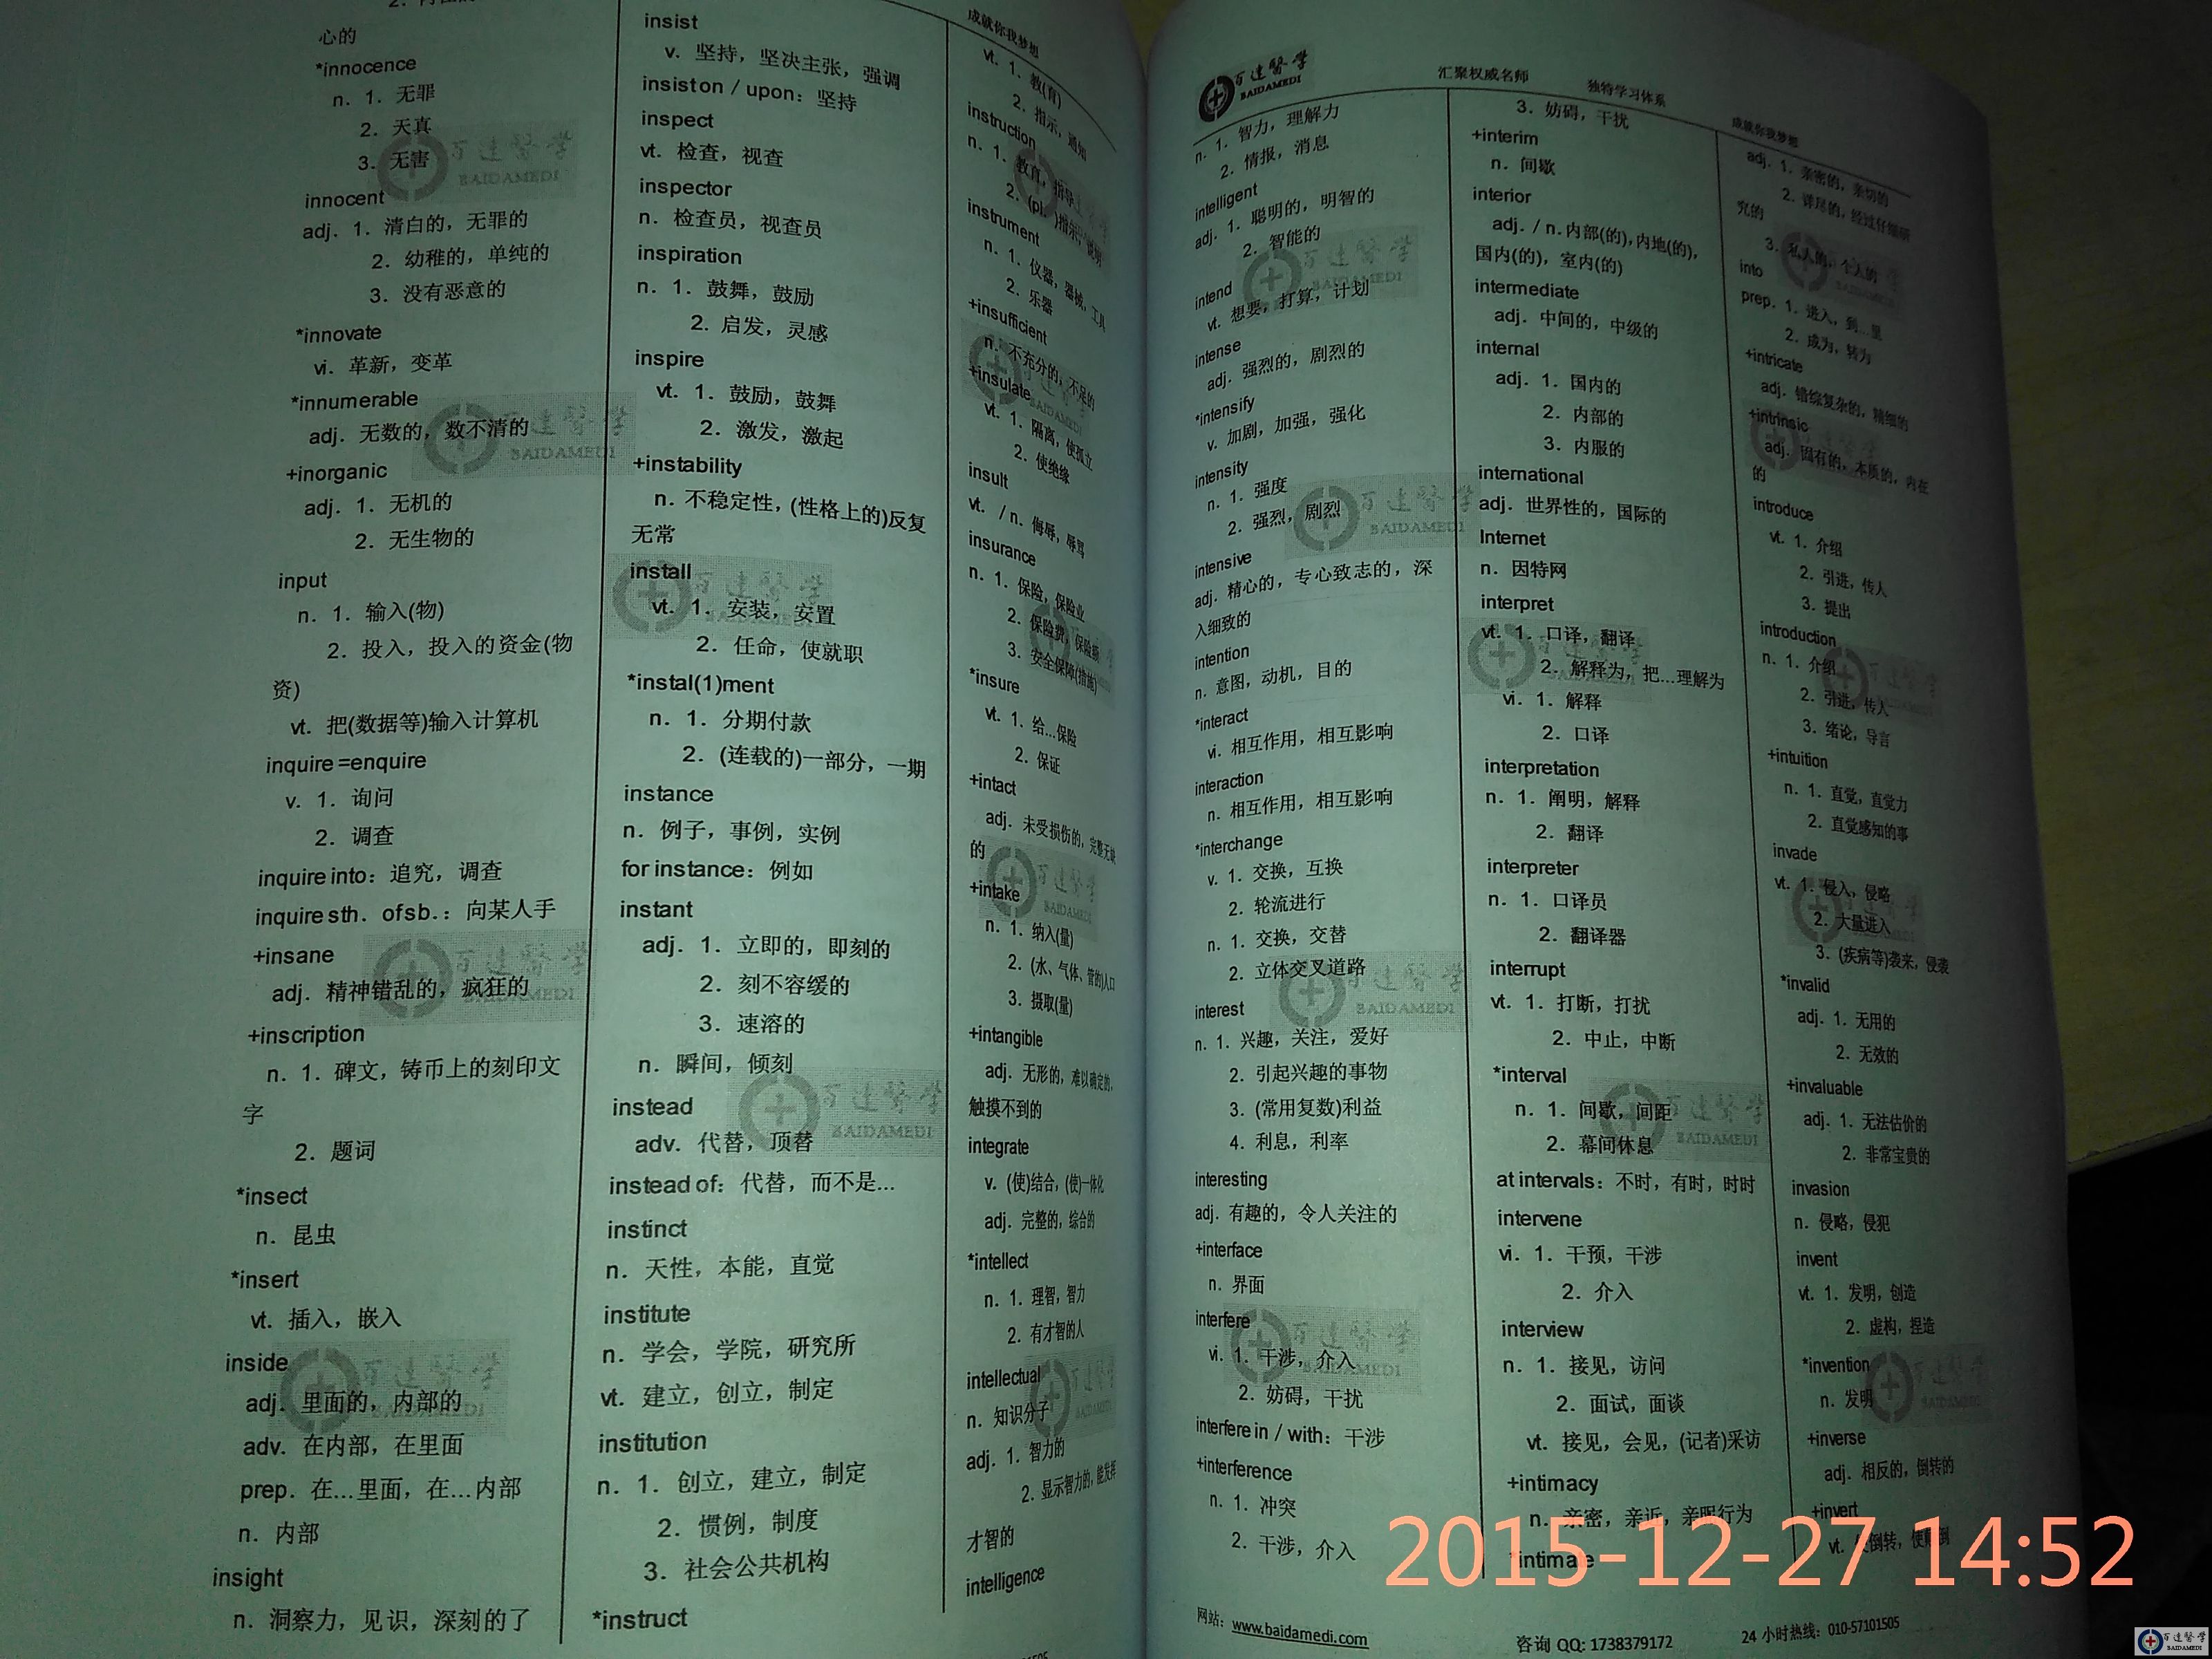 心的
*innocence
n. 1. 无罪
2. 天真
3. 无害
innocent
adj. 1. 清白的，无罪的
2. 幼稚的，单纯的
3. 没有恶意的
*innovate
vi. 革新，变革
*innumerable
adj. 无数的，数不清的
+inorganic
adj. 1. 无机的
2. 无生物的
input
n. 1. 输入(物)
2. 投入，投入的资金(物
资)
vt. 把(数据等)输入计算机
inquire=enquire
v. 1. 询问
2. 调查
inquire into：追究，调查
inquire sth. of sb.：向某人手
+insane
adj. 精神错乱的，疯狂的
+inscription
n. 1. 碑文，铸币上的刻印文
字
2. 题词
*insect
n. 昆虫
*insert
vt. 插入，嵌入
inside
adj. 里面的，内部的
adv. 在内部，在里面
prep. 在…里面，在…内部
n. 内部
insight
n. 洞察力，见识，深刻的了
insist
v. 坚持，坚决主张，强调
insist on / upon：坚持
inspect
vt. 检查，视查
inspector
n. 检查员，视查员
inspiration
n. 1. 鼓舞，鼓励
2. 启发，灵感
inspire
vt. 1. 鼓励，鼓舞
2. 激发，激起
+instability
n. 不稳定性，(性格上的)反复
无常
install
vt. 1. 安装，安置
2. 任命，使就职
*instal(1)ment
n. 1. 分期付款
2. (连载的)一部分，一期
instance
n. 例子，事例，实例
for instance：例如
instant
adj. 1. 立即的，即刻的
2. 刻不容缓的
3. 速溶的
n. 瞬间，倾刻
instead
adv. 代替，顶替
instead of：代替，而不是…
instinct
n. 天性，本能，直觉
institute
n. 学会，学院，研究所
vt. 建立，创立，制定
institution
n. 1. 创立，建立，制定
2. 惯例，制度
3. 社会公共机构
*instruct
成就你我梦想
vt. 1. 教(育)
2. 指示，通知
instruction
n. 1. 教育，指导
2. (pl. )指示，说明
instrument
n. 1. 仪器，器械，工具
2. 乐器
+insufficient
n. 不充分的，不足的
+insulate
vt. 1. 隔离，使孤立
2. 使绝缘
insult
vt. / n. 侮辱，辱骂
insurance
n. 1. 保险，保险业
2. 保险费，保险额
3. 安全保障(措施)
*insure
vt. 1. 给…保险
2. 保证
+intact
adj. 未受损伤的，完整无缺
的
+intake
n. 1. 纳入(量)
2. (水、气体、管的)人口
3. 摄取(量)
+intangible
adj. 无形的，难以确定的，
触摸不到的
integrate
v. (使)结合，(使)一体化
adj. 完整的，综合的
*intellect
n. 1. 理智，智力
2. 有才智的人
intellectual
n. 知识分子
adj. 1. 智力的
2. 显示智力的，能发挥
才智的
intelligence
百达醫学
BAIDAMEDI
汇聚权威名师 独特学习体系 成就你我梦想
n. 1. 智力，理解力
2. 情报，消息
intelligent
adj. 1. 聪明的，明智的
2. 智能的
intend
vt. 想要，打算，计划
intense
adj. 强烈的，剧烈的
*intensify
v. 加剧，加强，强化
intensity
n. 1. 强度
2. 强烈，剧烈
intensive
adj. 精心的，专心致志的，深
入细致的
intention
n. 意图，动机，目的
*interact
vi. 相互作用，相互影响
interaction
n. 相互作用，相互影响
*interchange
v. 1. 交换，互换
2. 轮流进行
n. 1. 交换，交替
2. 立体交叉道路
interest
n. 1. 兴趣，关注，爱好
2. 引起兴趣的事物
3. (常用复数)利益
4. 利息，利率
interesting
adj. 有趣的，令人关注的
+interface
n. 界面
interfere
vi. 1. 干涉，介入
2. 妨碍，干扰
interfere in / with：干涉
+interference
n. 1. 冲突
2. 干涉，介入
3. 妨碍，干扰
+interim
n. 间歇
interior
adj. / n. 内部(的)，内地(的)，
国内(的)，室内(的)
intermediate
adj. 中间的，中级的
internal
adj. 1. 国内的
2. 内部的
3. 内服的
international
adj. 世界性的，国际的
Internet
n. 因特网
interpret
vt. 1. 口译，翻译
2. 解释为，把…理解为
vi. 1. 解释
2. 口译
interpretation
n. 1. 阐明，解释
2. 翻译
interpreter
n. 1. 口译员
2. 翻译器
interrupt
vt. 1. 打断，打扰
2. 中止，中断
*interval
n. 1. 间歇，间距
2. 幕间休息
at intervals：不时，有时，时时
intervene
vi. 1. 干预，干涉
2. 介入
interview
n. 1. 接见，访问
2. 面试，面谈
vt. 接见，会见，(记者)采访
+intimacy
n. 亲密，亲近，亲昵行为
*intimate
adj. 1. 亲密的，亲切的
2. 详尽的，经过仔细研
究的
3. 私人的，个人的
into
prep. 1. 进入，到…里
2. 成为，转为
+intricate
adj. 错综复杂的，精细的
+intrinsic
adj. 固有的，本质的，内在
的
introduce
vt. 1. 介绍
2. 引进，传人
3. 提出
introduction
n. 1. 介绍
2. 引进，传人
3. 绪论，导言
+intuition
n. 1. 直觉，直觉力
2. 直觉感知的事
invade
vt. 1. 侵入，侵略
2. 大量进入
3. (疾病等)袭来，侵袭
*invalid
adj. 1. 无用的
2. 无效的
+invaluable
adj. 1. 无法估价的
2. 非常宝贵的
invasion
n. 侵略，侵犯
invent
vt. 1. 发明，创造
2. 虚构，捏造
*invention
n. 发明
+inverse
adj. 相反的，倒转的
+invert
vt. 倒转，使颠倒
2015-12-27 14:52
网站：www.baidamedi.com 咨询 QQ: 1738379172 24 小时热线：010-57101505
百达醫学
BAIDAMEDI